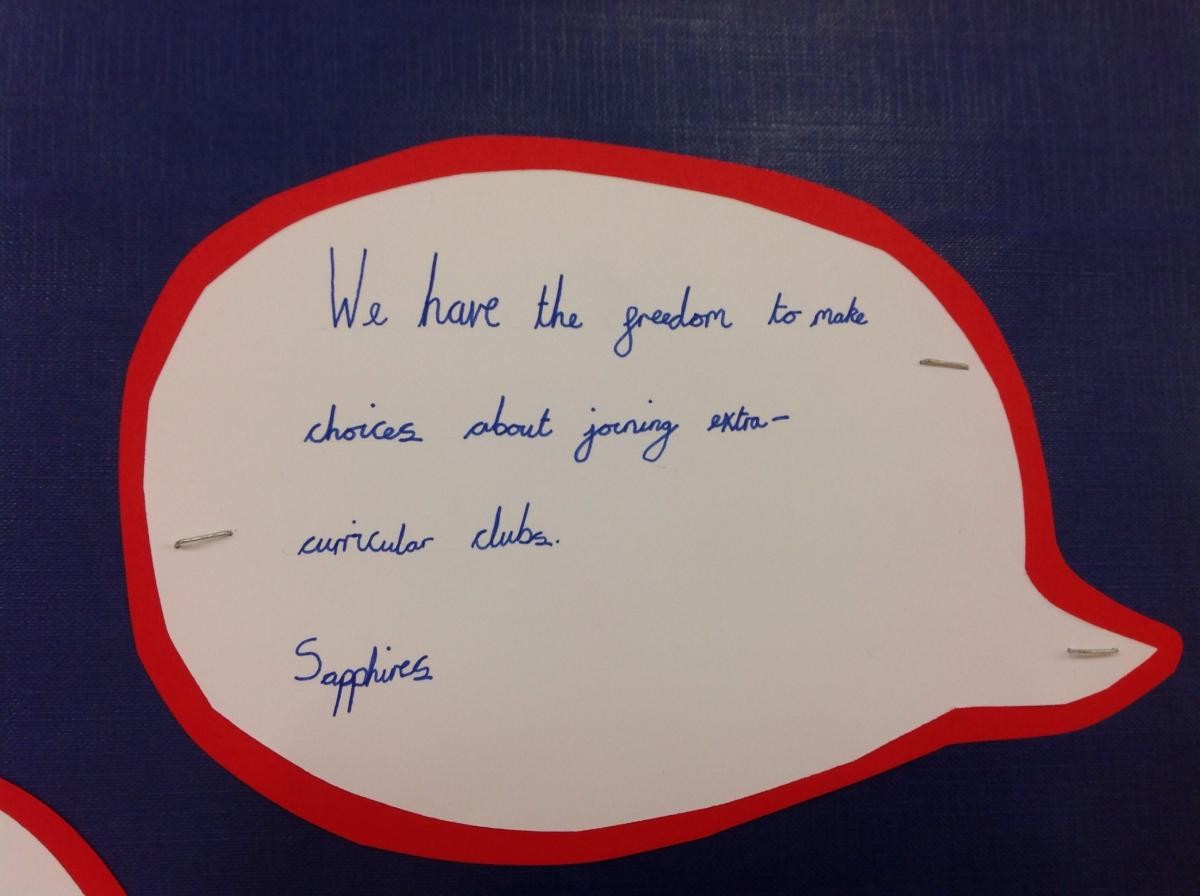 We have the freedom to make
choices about joining extra-
curricular clubs.
Sapphires